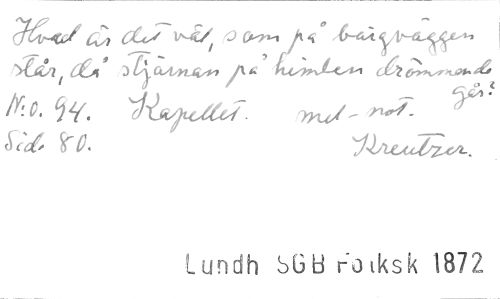 Hvad är det väl, som på bärgväggen
står, då stjärnan på himlen drömmende
går?
N:o. 94. Kapellet. mel-not.
Sid. 80. Kreutzer.
Lundh SGB Folksk 1872